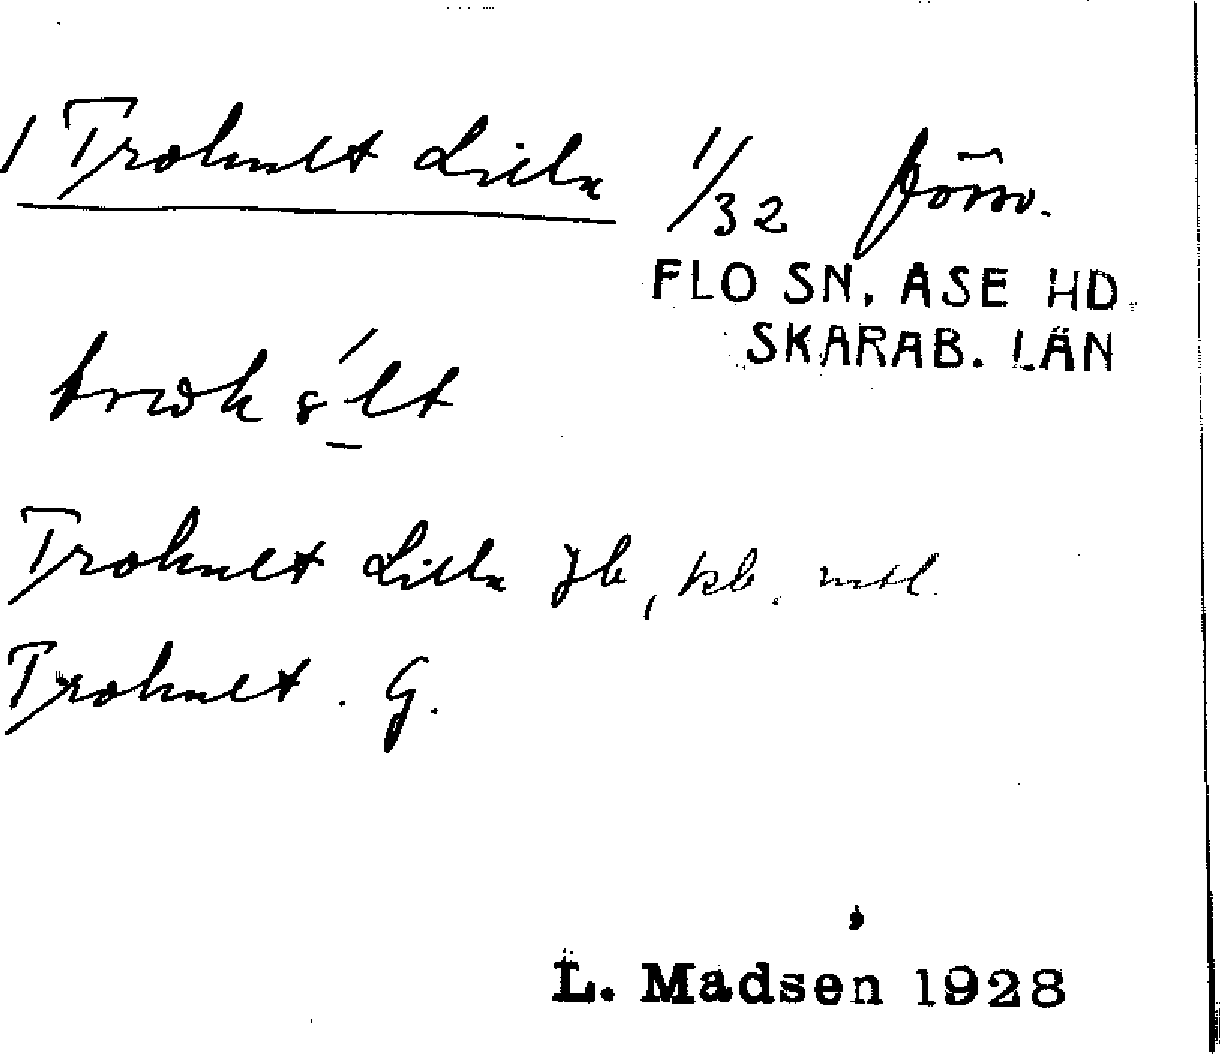 1 Trohult Lilla 1/32 förr.
FLO SN. ASE HD
SKARAB. LÄN
Trohult Lilla Jb, kb. mtl.
Trohult. G.
L. Madsen 1928